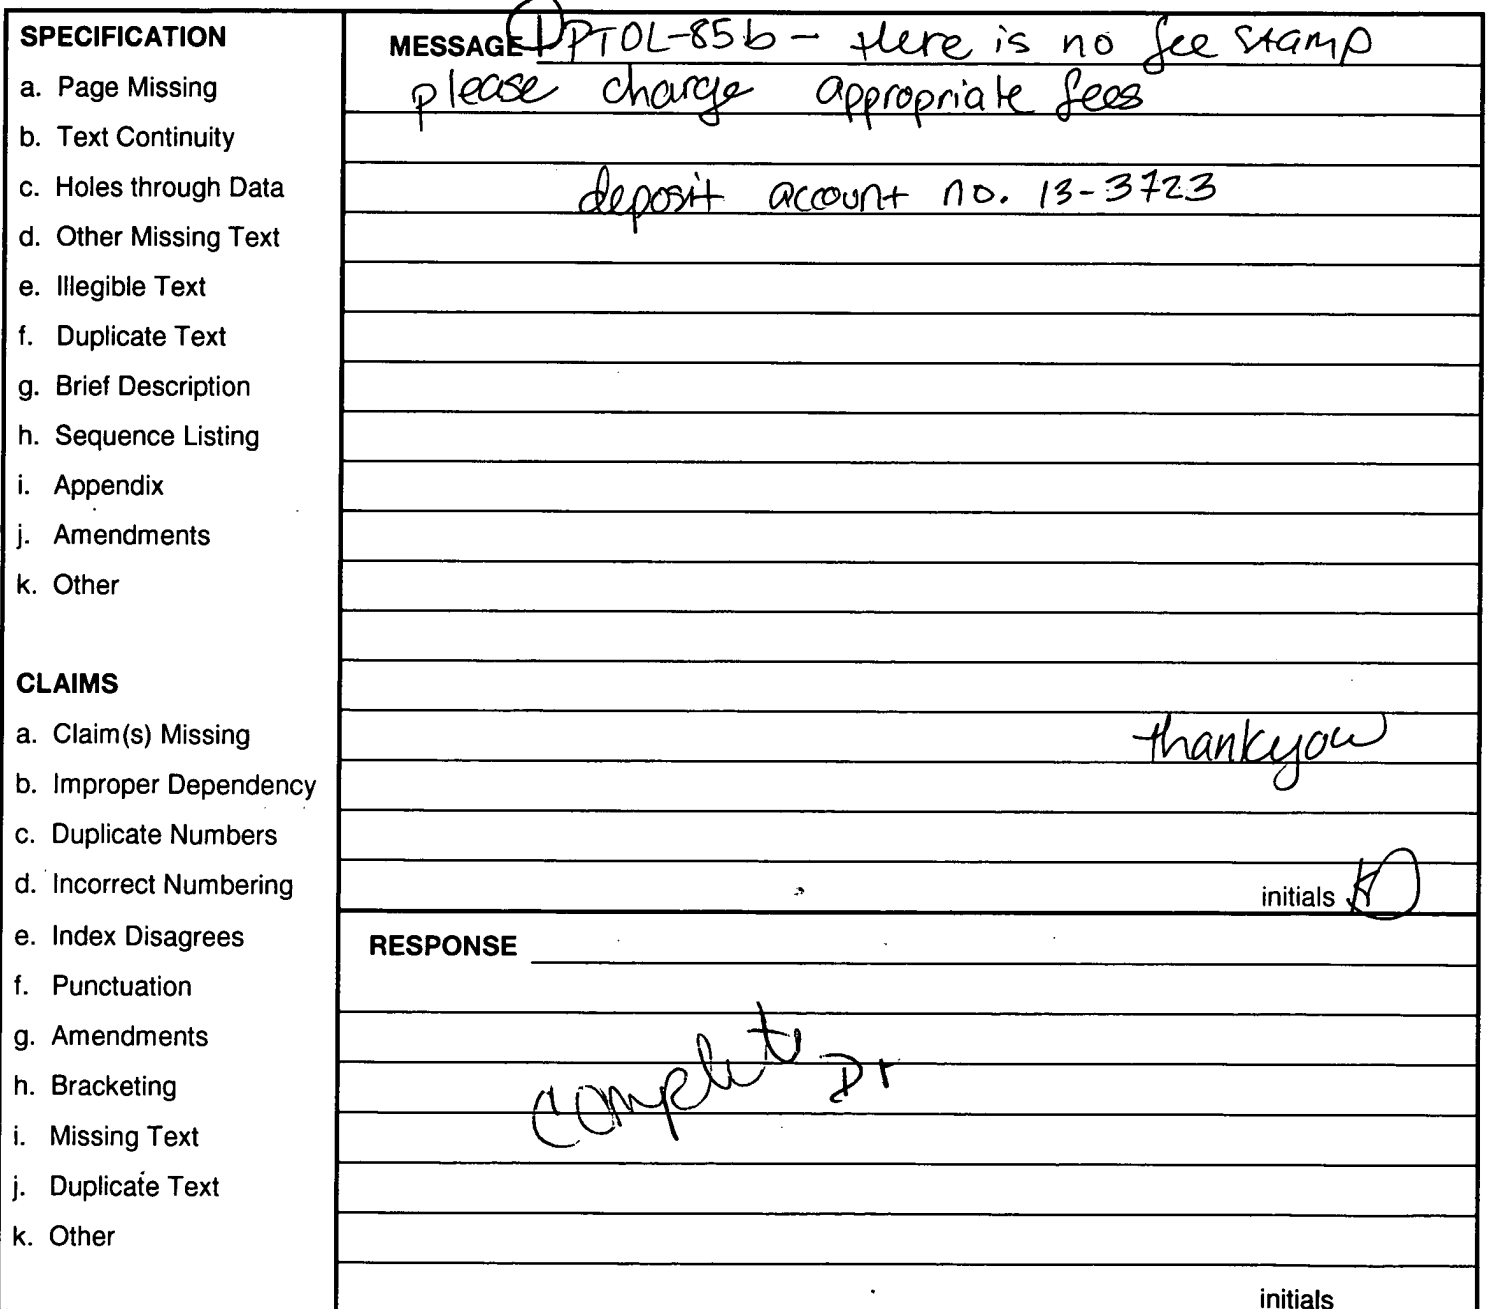 SPECIFICATION
a. Page Missing
b. Text Continuity
c. Holes through Data
d. Other Missing Text
e. Illegible Text
f. Duplicate Text
g. Brief Description
h. Sequence Listing
i. Appendix
j. Amendments
k. Other
CLAIMS
a. Claim(s) Missing
b. Improper Dependency
c. Duplicate Numbers
d. Incorrect Numbering
e. Index Disagrees
f. Punctuation
g. Amendments
h. Bracketing
i. Missing Text
j. Duplicate Text
k. Other
MESSAGE 1 PTOL-85b - there is no fee stamp
please charge appropriate fees
deposit account no. 13-3723
thankyou
initials
RESPONSE
complete
initials